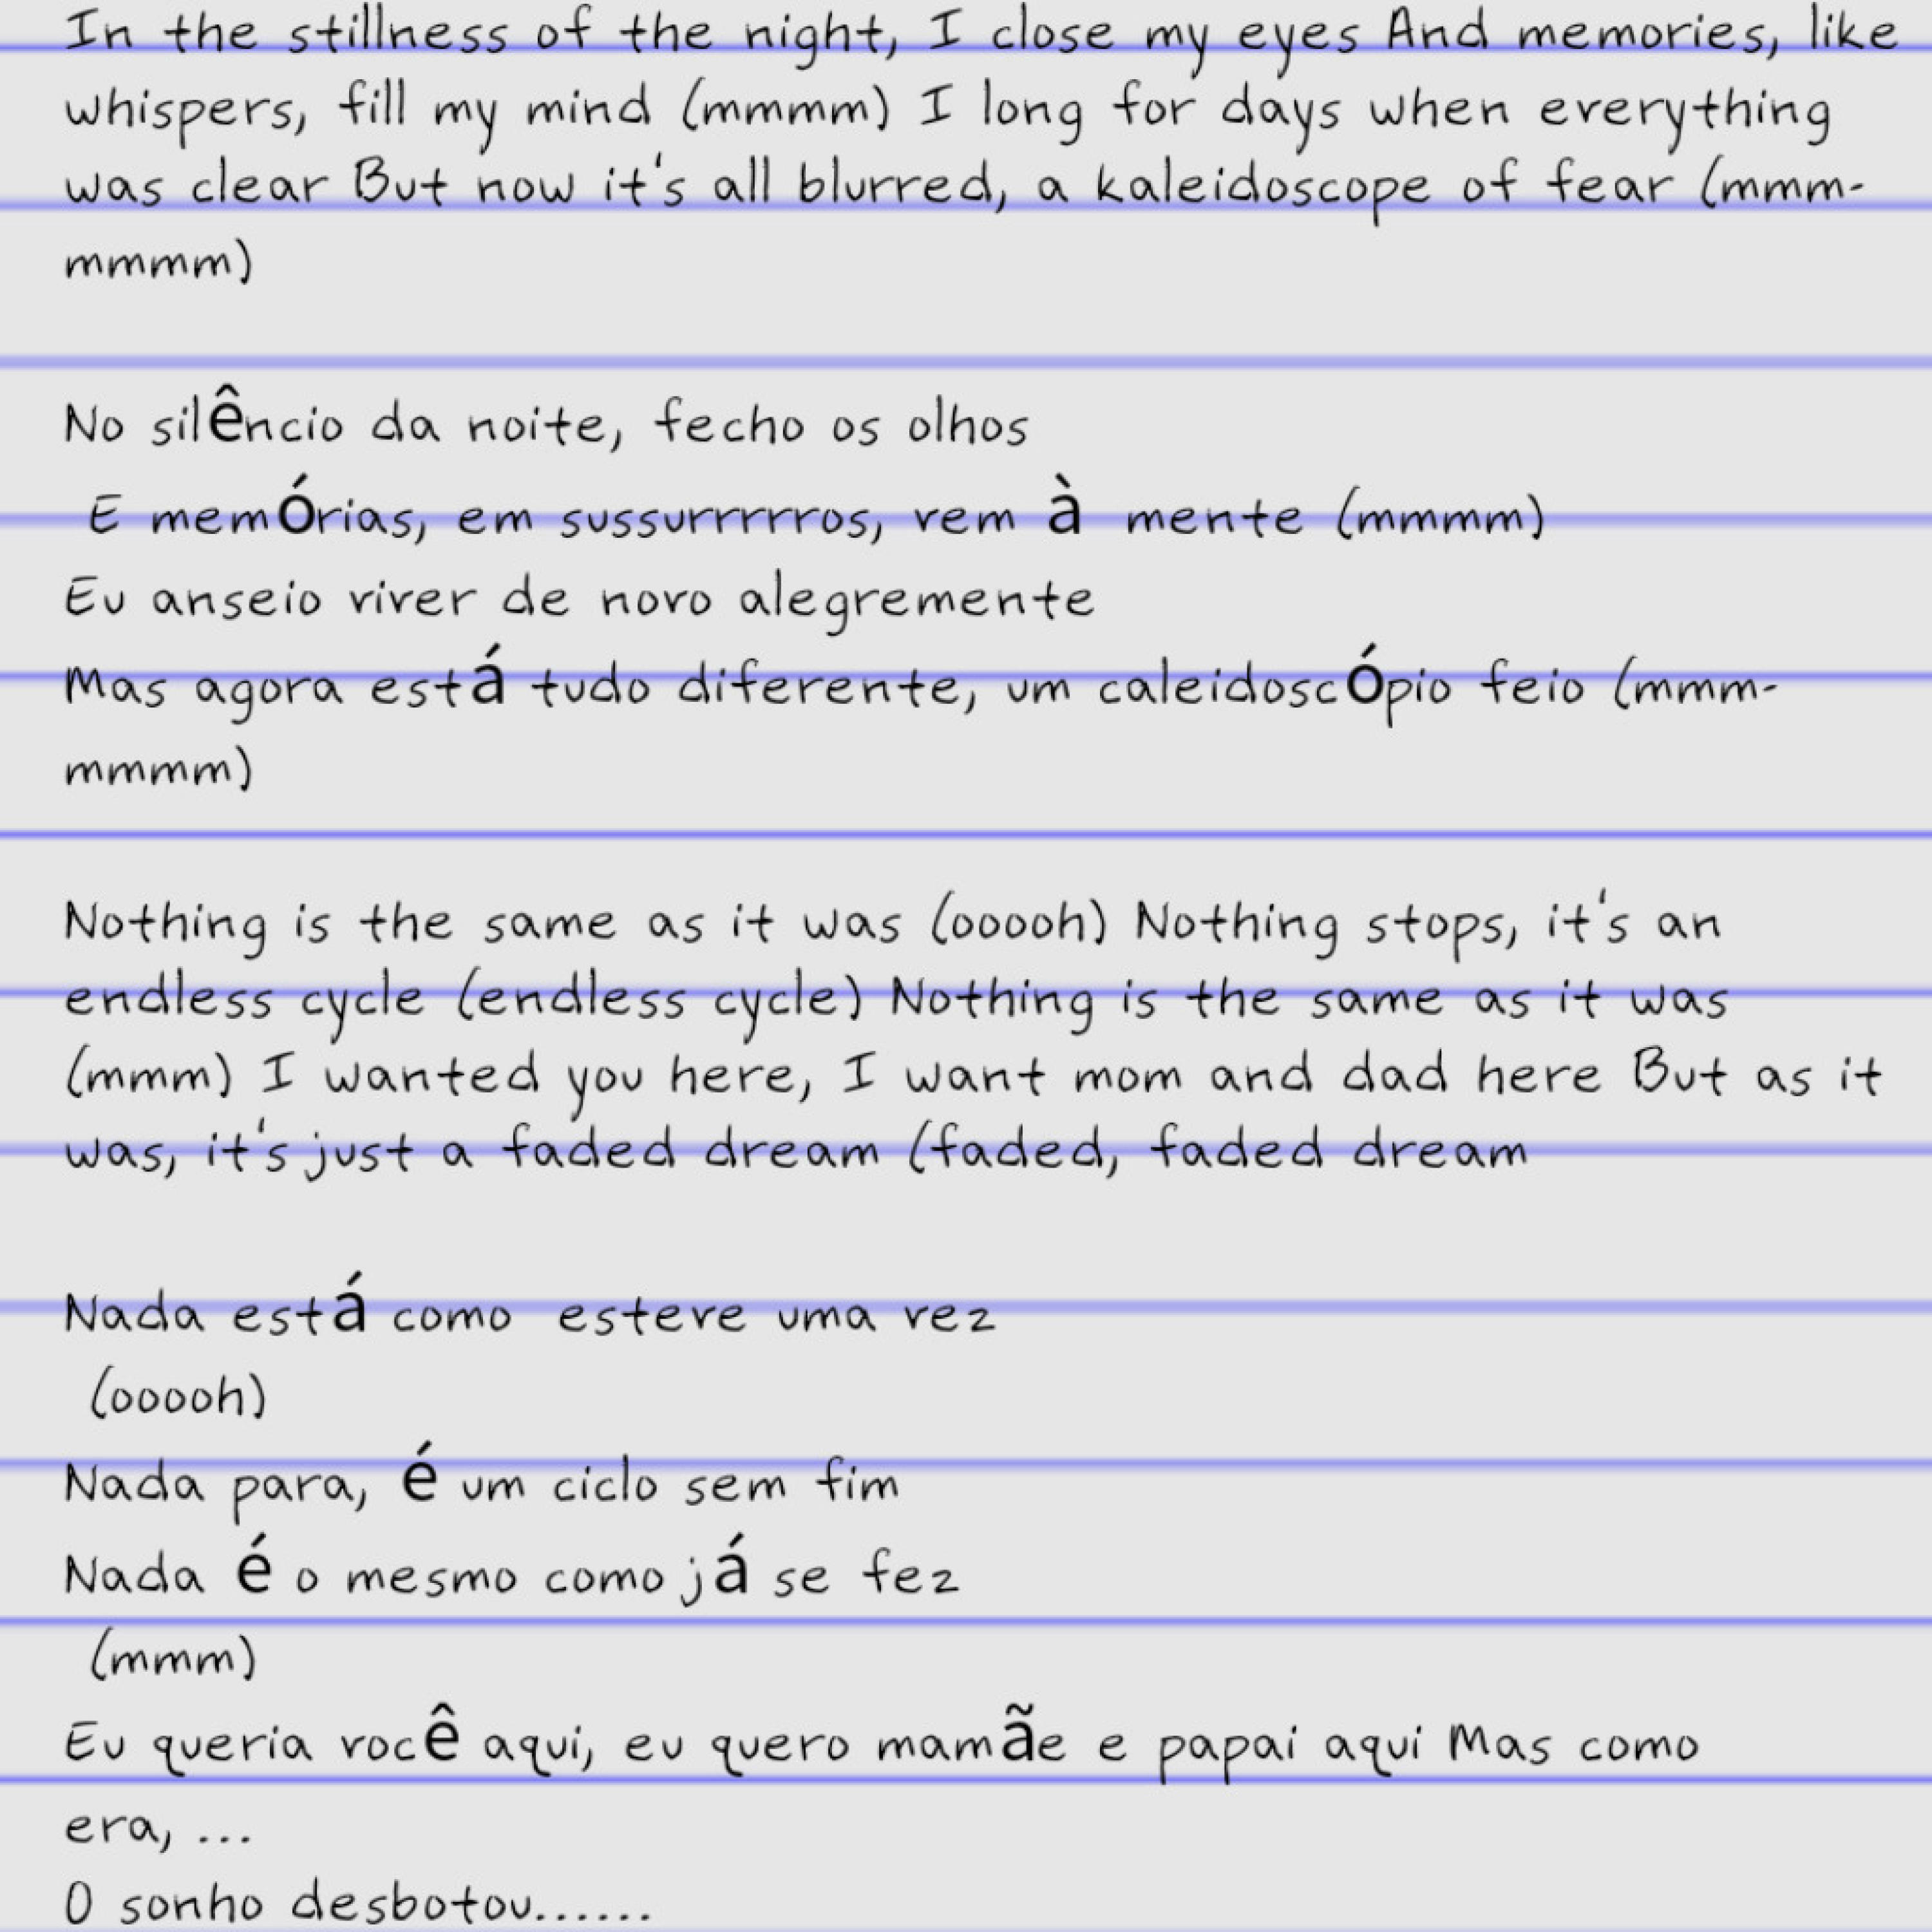 In the stillness of the night, I close my eyes And memories, like
whispers, fill my mind (mmmm) I long for days when everything
was clear But now it's all blurred, a kaleidoscope of fear (mmm-
mmmm)
No silêncio da noite, fecho os olhos
E memórias, em sussurrrrros, vem à mente (mmmm)
Eu anseio viver de novo alegremente
Mas agora está tudo diferente, um caleidoscópio feio (mmm-
mmmm)
Nothing is the same as it was (ooooh) Nothing stops, it's an
endless cycle (endless cycle) Nothing is the same as it was
(mmm) I wanted you here, I want mom and dad here But as it
was, it's just a faded dream (faded, faded dream
Nada está como esteve uma vez
(ooooh)
Nada para, é um ciclo sem fim
Nada é o mesmo como já se fez
(mmm)
Eu queria você aqui, eu quero mamãe e papai aqui Mas como
era, ...
O sonho desbotou......